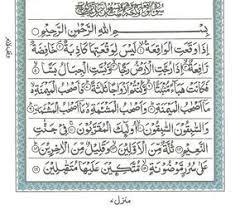 بِسْمِ اللهِ الرَّحْمٰنِ الرَّحِيْمِ
اِذَا وَقَعَتِ الْوَاقِعَةُ لَيْسَ لِوَقْعَتِهَا كَاذِبَةٌ خَافِضَةٌ
رَّافِعَةٌ اِذَا رُجَّتِ الْاَرْضُ رَجًّا وَّبُسَّتِ الْجِبَالُ بَسًّا
فَكَانَتْ هَبَآءً مُّنْۢبَثًّا وَّكُنْتُمْ اَزْوَاجًا ثَلٰثَةً فَاَصْحٰبُ الْمَيْمَنَةِ
مَآ اَصْحٰبُ الْمَيْمَنَةِ وَاَصْحٰبُ الْمَشْـَٔمَةِ مَآ اَصْحٰبُ الْمَشْـَٔمَةِ
وَالسّٰبِقُوْنَ السّٰبِقُوْنَ اُولٰٓئِكَ الْمُقَرَّبُوْنَ فِيْ جَنّٰتِ
النَّعِيْمِ ثُلَّةٌ مِّنَ الْاَوَّلِيْنَ وَقَلِيْلٌ مِّنَ الْاٰخِرِيْنَ
عَلٰى سُرُرٍ مَّوْضُوْنَةٍ مُّتَّكِـِٕيْنَ عَلَيْهَا مُتَقٰبِلِيْنَ
منزل ٧